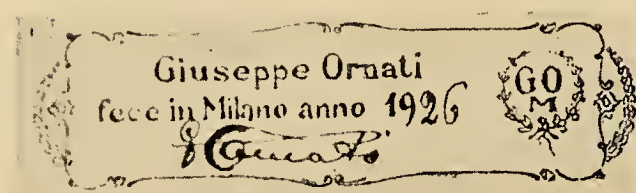 Giuseppe Ornati
fece in Milano anno 1926
GO
M